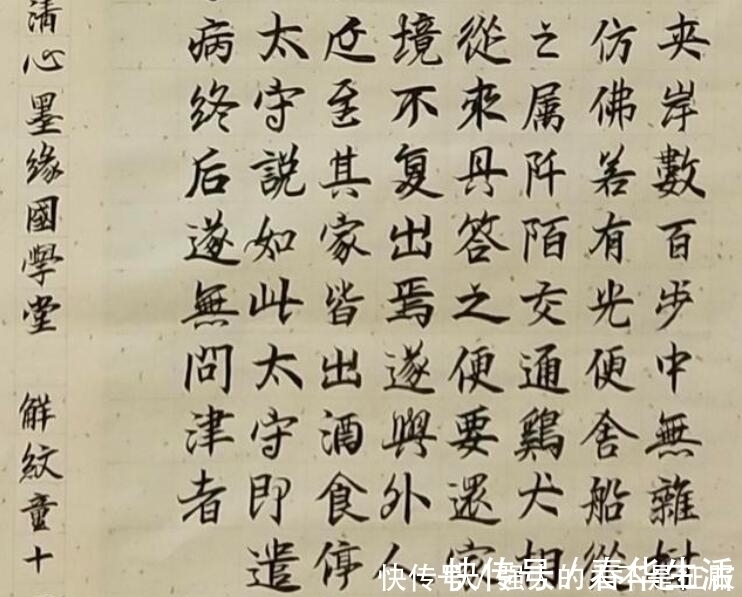 夹岸數百步中無雜樹
仿佛若有光便舍船從
之属阡陌交通鷄犬相
從來具答之便要還家
境不复出焉遂與外人
延至其家皆出酒食停
太守説如此太守即遣
病終后遂無問津者
清心墨缘國學堂 解紋童十
快传号 / 春华生活
快传号